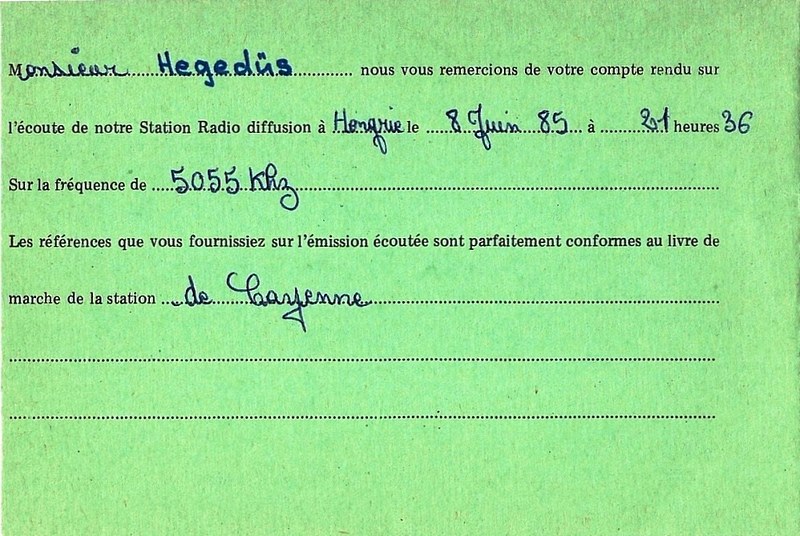 Monsieur Hegedüs nous vous remercions de votre compte rendu sur
l'écoute de notre Station Radio diffusion à Hongrie le 8 Juin 85 à 21 heures 36
Sur la fréquence de 5055 Khz
Les références que vous fournissiez sur l'émission écoutée sont parfaitement conformes au livre de
marche de la station de Cayenne